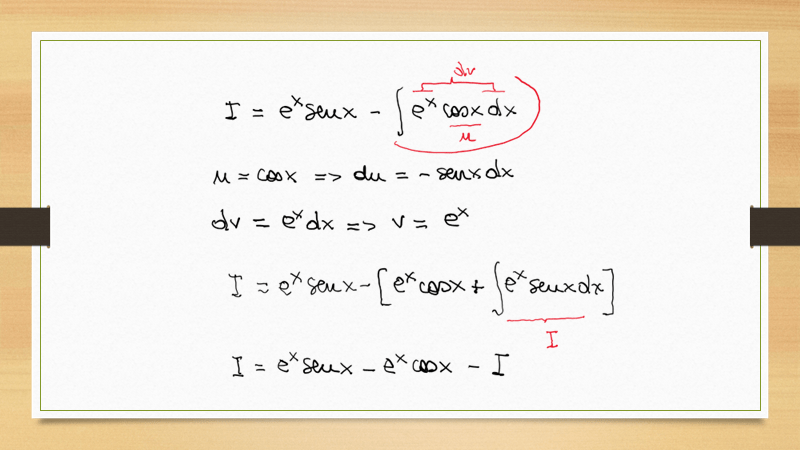 dv
I = eˣ senx - ∫ eˣ cosx dx
u
u = cosx => du = - senx dx
dv = eˣ dx => v = eˣ
I = eˣ senx - [eˣ cosx + ∫ eˣ senx dx]
I
I = eˣ senx - eˣ cosx - I